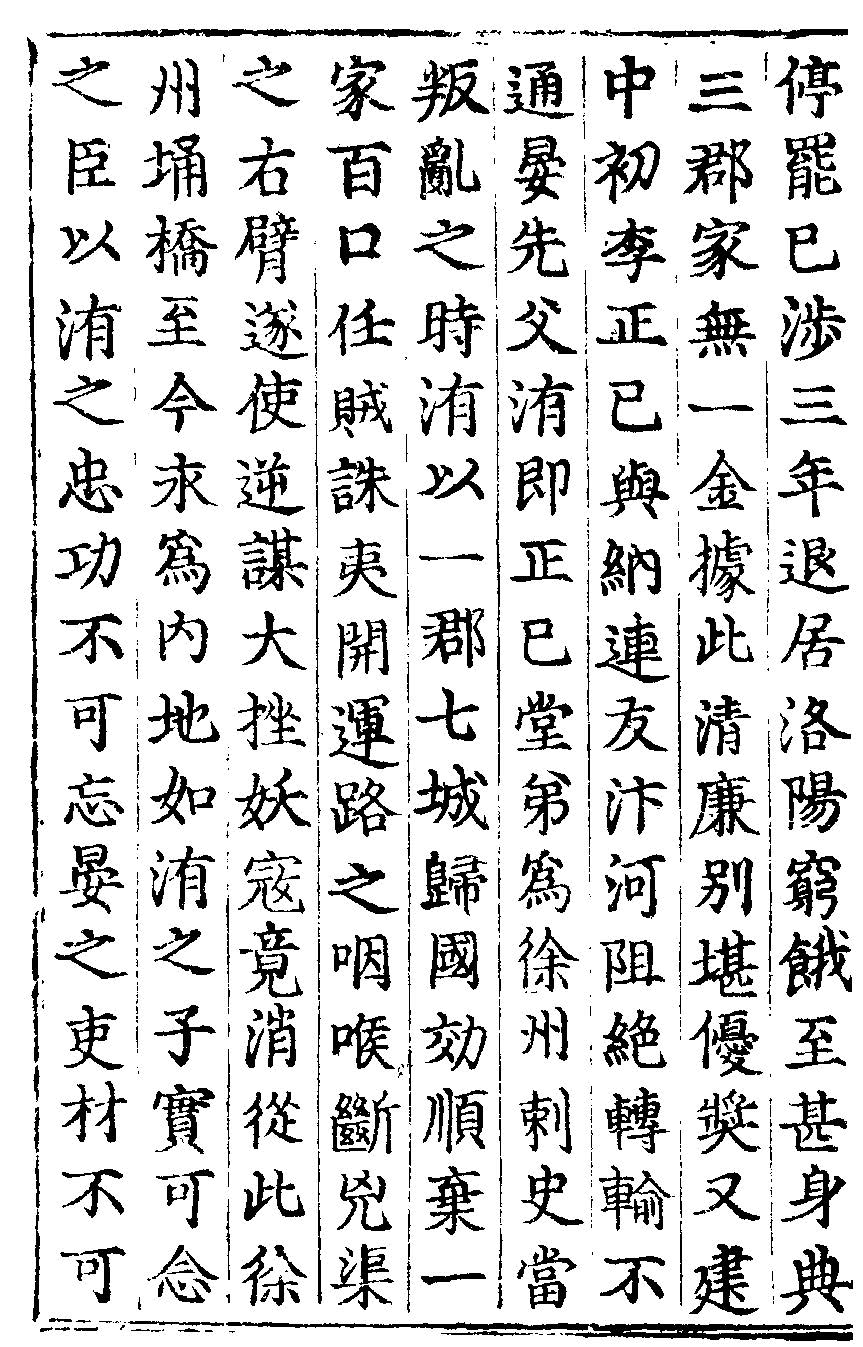 停罷已涉三年退居洛陽窮餓至甚身典
三郡家無一金據此清廉別堪優奬又建
中初李正已與納連友汴河阻絶轉輸不
通晏先父洧即正已堂弟爲徐州刺史當
叛亂之時洧以一郡七城歸國効順棄一
家百口任賊誅夷開運路之咽喉斷兇渠
之右臂遂使逆謀大挫妖寇竟消從此徐
州埇橋至今永爲内地如洧之子實可念
之臣以洧之忠功不可忘晏之吏材不可